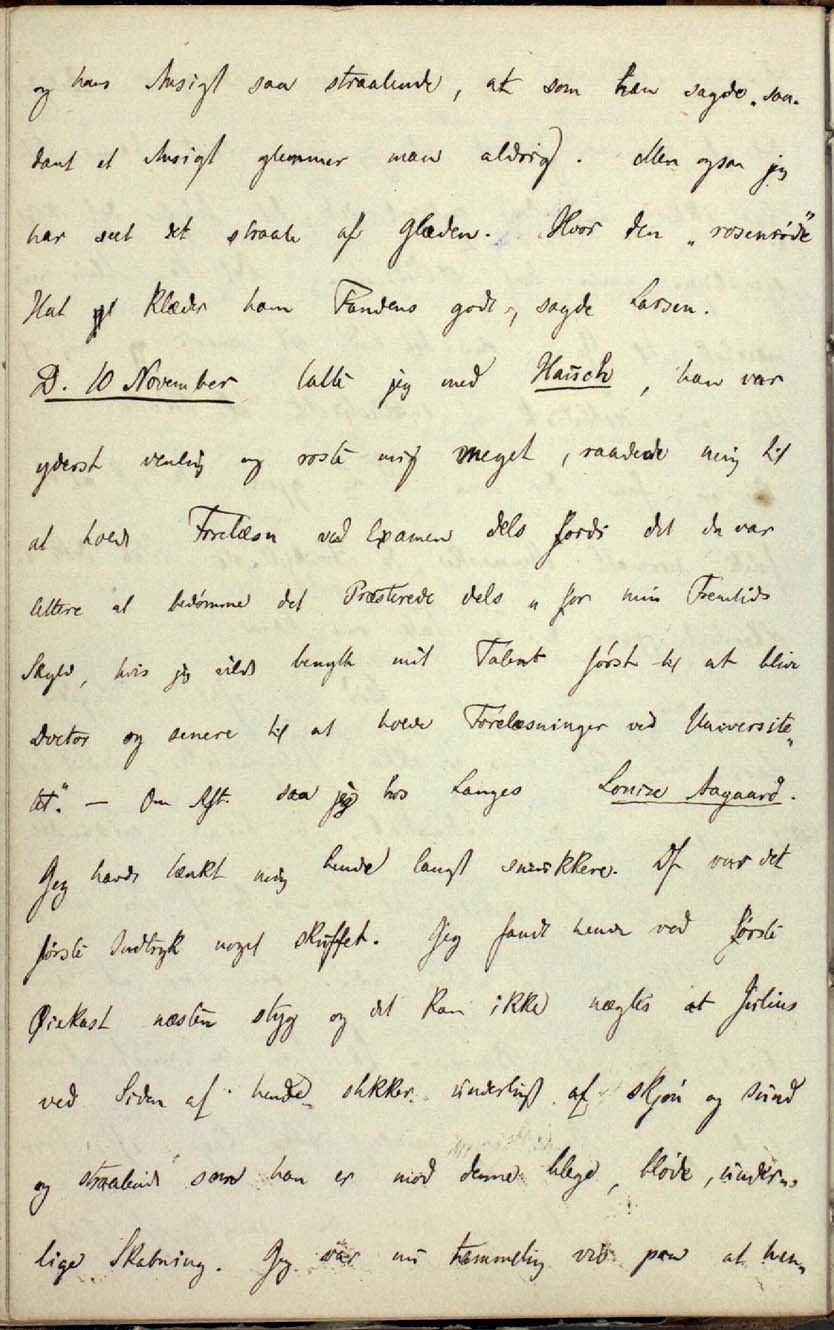 og hans Ansigt saa straalende, at som han sagde „saa-
dant et Ansigt glemmer man aldrig). Men ogsaa jeg
har seet det straale af Glæden. Hvor den „rosenröde"
Hat klæder ham Fandens godt, sagde Larsen.
D. 10 November talte jeg med Hauch, han var
yderst venlig og roste mig meget, raadede mig til
at holde Forelæsn ved Examen dels fordi det da var
lettere at bedømme det Præsterede dels „for min Fremtids
Skyld, hvis jeg vilde benytte mit Talent først til at blive
Doctor og senere til at holde Forelæsninger ved Universite-
tet." — Om Aft. saa jeg hos Langes Louise Aagaard.
Jeg havde tænkt mig hende langt smukkere. Af var det
første Indtryk noget skuffet. Jeg fandt hende ved første
Øiekast næsten styg og det kan ikke nægtes at Julius
ved Siden af hende stikker underligt af skjøn og sund
og straalende som han er mod denne blege, bløde, underlige
Skabning. Jeg var nu temmelig vis paa at hen-